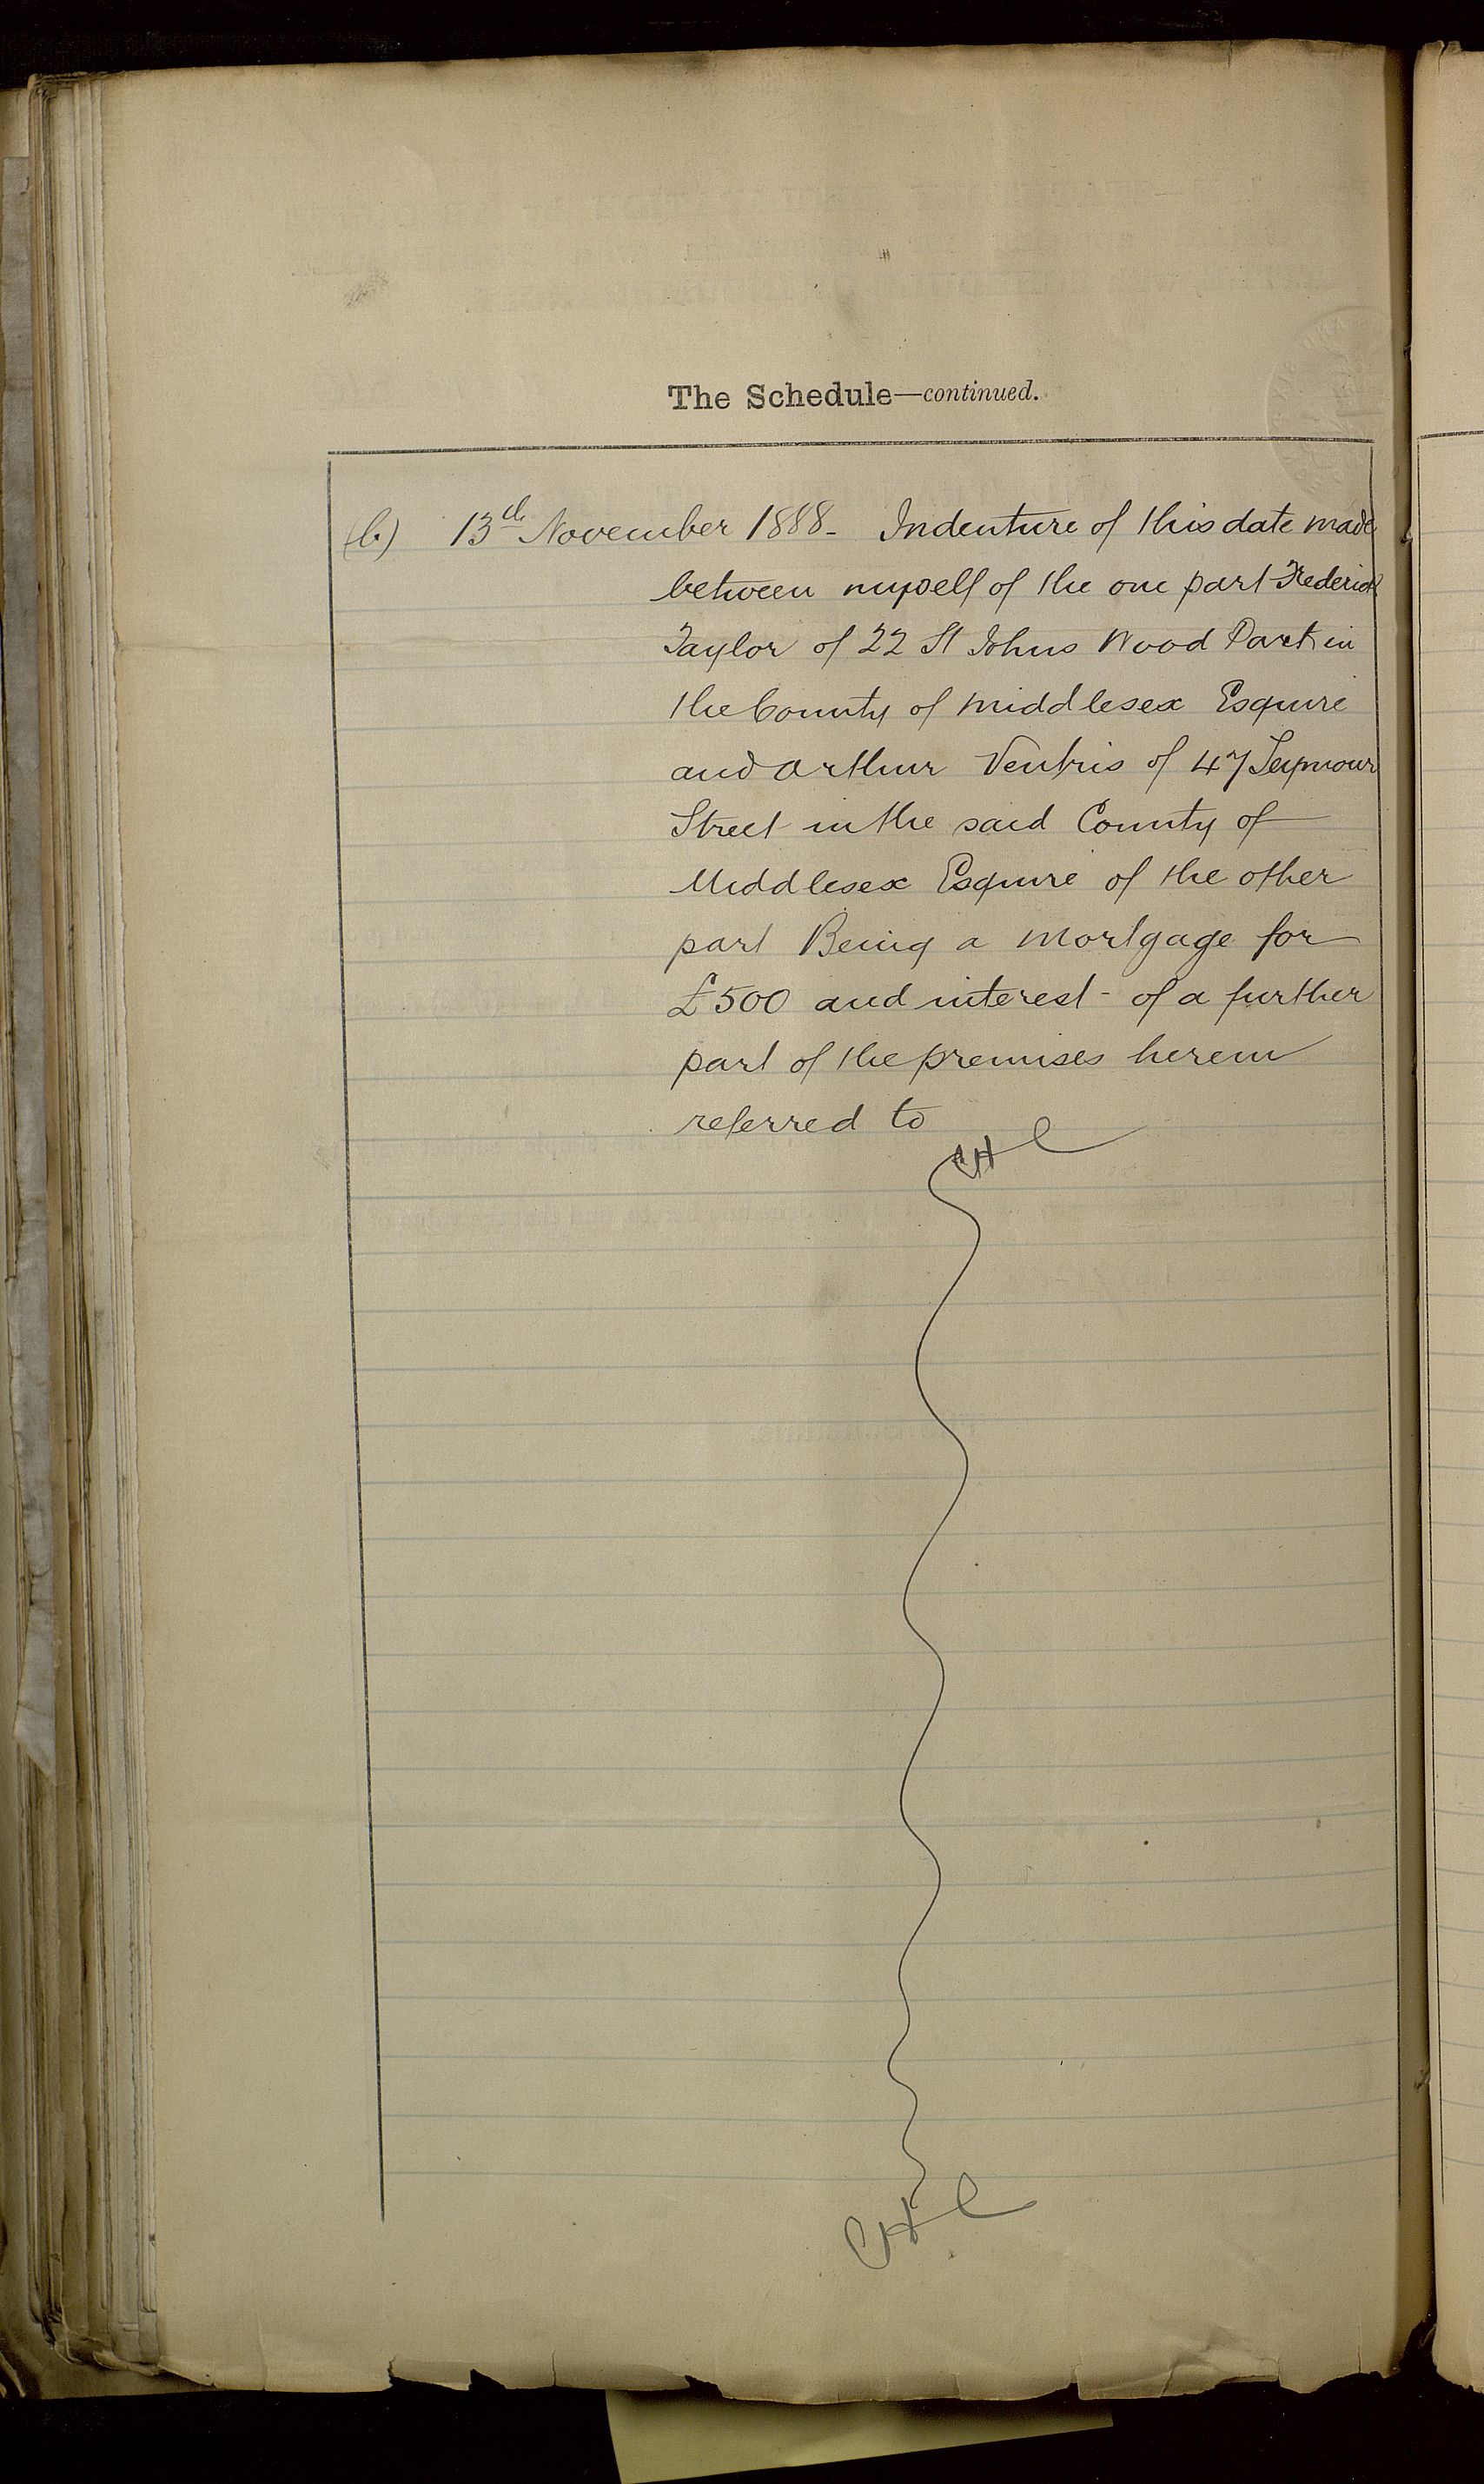 The Schedule—continued.
(b.) 13th November 1888 - Indenture of this date made
between myself of the one part Frederick
Taylor of 22 St Johns Wood Park in
the County of Middlesex Esquire
and Arthur Ventris of 47 Seymour
Street in the said County of
Middlesex Esquire of the other
part Being a Mortgage for
£500 and interest - of a further
part of the premises herein
referred to